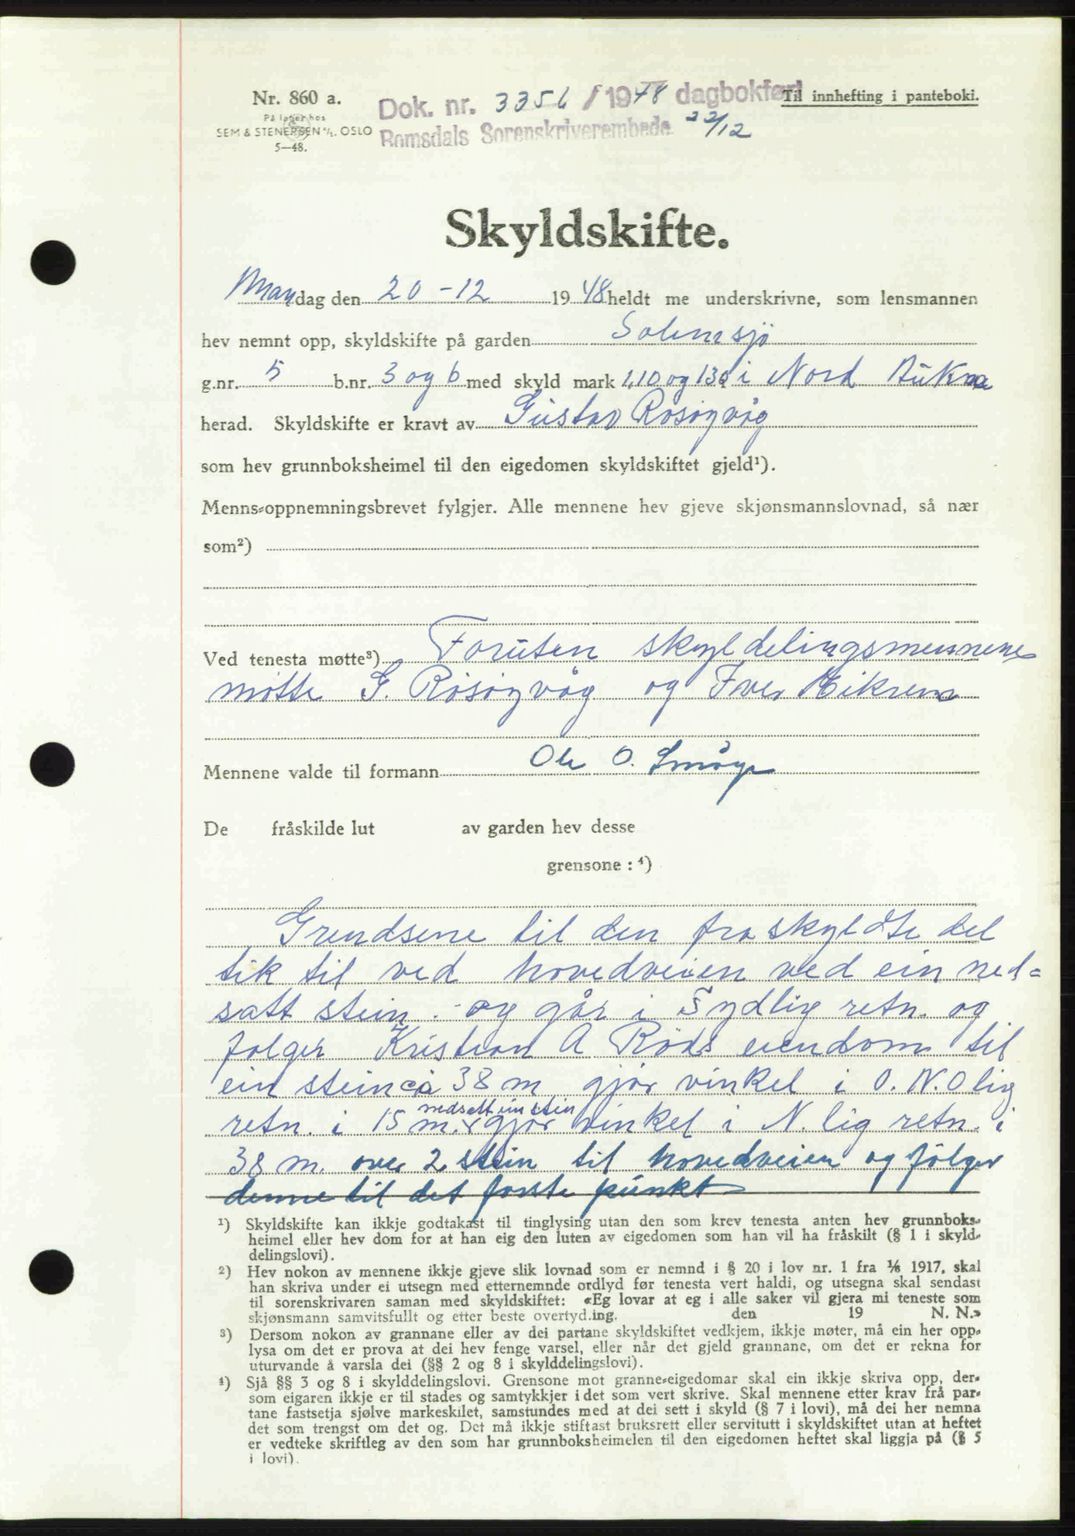 Nr. 860 a.
På lager hos
SEM & STENERSEN A/S. OSLO
5—48.
Dok. nr. 3356 / 1948 dagbokført
Romsdals Sorenskriverembede 22/12
Til innhefting i panteboki.
Skyldskifte.
Mandag den 20-12 1948 heldt me underskrivne, som lensmannen
hev nemnt opp, skyldskifte på garden Solemsjø
g.nr. 5 b.nr. 3 og 6 med skyld mark 1,10 og 1 i Nord Aukra
herad. Skyldskifte er kravt av Gustav Røsøgvåg
som hev grunnboksheimel til den eigedomen skyldskiftet gjeld¹).
Menns-oppnemningsbrevet fylgjer. Alle mennene hev gjeve skjønsmannslovnad, så nær
som²)
Ved tenesta møtte³) Foruten skyldelingsmennene
møtte G. Røsøgvåg og Iver Eikrem
Mennene valde til formann Ole O. Småge
De fråskilde lut av garden hev desse
grensone : ⁴)
Grendsene til den fraskyldte del
tik til ved hovedveien ved ein ned=
satt stein. og går i Sydlig retn. og
følger Kristian A Røds eiendom til
ein stein ca 38 m gjør vinkel i O.N.O lig
nedsatt ein stein
retn. i 15 m. gjør vinkel i N. lig retn. i
38 m. over 2 stein til hovedveien og følger
denne til det første punkt
¹) Skyldskifte kan ikkje godtakast til tinglysing utan den som krev tenesta anten hev grunnboks-
heimel eller hev dom for at han eig den luten av eigedomen som han vil ha fråskilt (§ 1 i skyld-
delingslovi).
²) Hev nokon av mennene ikkje gjeve slik lovnad som er nemnd i § 20 i lov nr. 1 fra ⅙ 1917, skal
han skriva under ei utsegn med etternemnde ordlyd før tenesta vert haldi, og utsegna skal sendast
til sorenskrivaren saman med skyldskiftet: «Eg lovar at eg i alle saker vil gjera mi teneste som
skjønsmann samvitsfullt og etter beste overtyd.ing. den 19 N. N.»
³) Dersom nokon av grannane eller av dei partane skyldskiftet vedkjem, ikkje møter, må ein her opp-
lysa om det er prova at dei hev fenge varsel, eller når det gjeld grannane, om det er rekna for
uturvande å varsla dei (§§ 2 og 8 i skylddelingslovi).
⁴) Sjå §§ 3 og 8 i skylddelingslovi. Grensone mot granne-eigedomar skal ein ikkje skriva opp, der-
som eigaren ikkje er til stades og samtykkjer i det som vert skrive. Skal mennene etter krav frå par-
tane fastsetja sjølve markeskilet, samstundes med at dei sett i skyld (§ 7 i lovi), må dei her nemna
det som trengst om det og. Det må ikkje stiftast bruksrett eller servitutt i skyldskiftet utan at heftet
er vedteke skriftleg av den som har grunnboksheimelen til den eigedomen heftet skal liggja på (§ 5
i lovi).